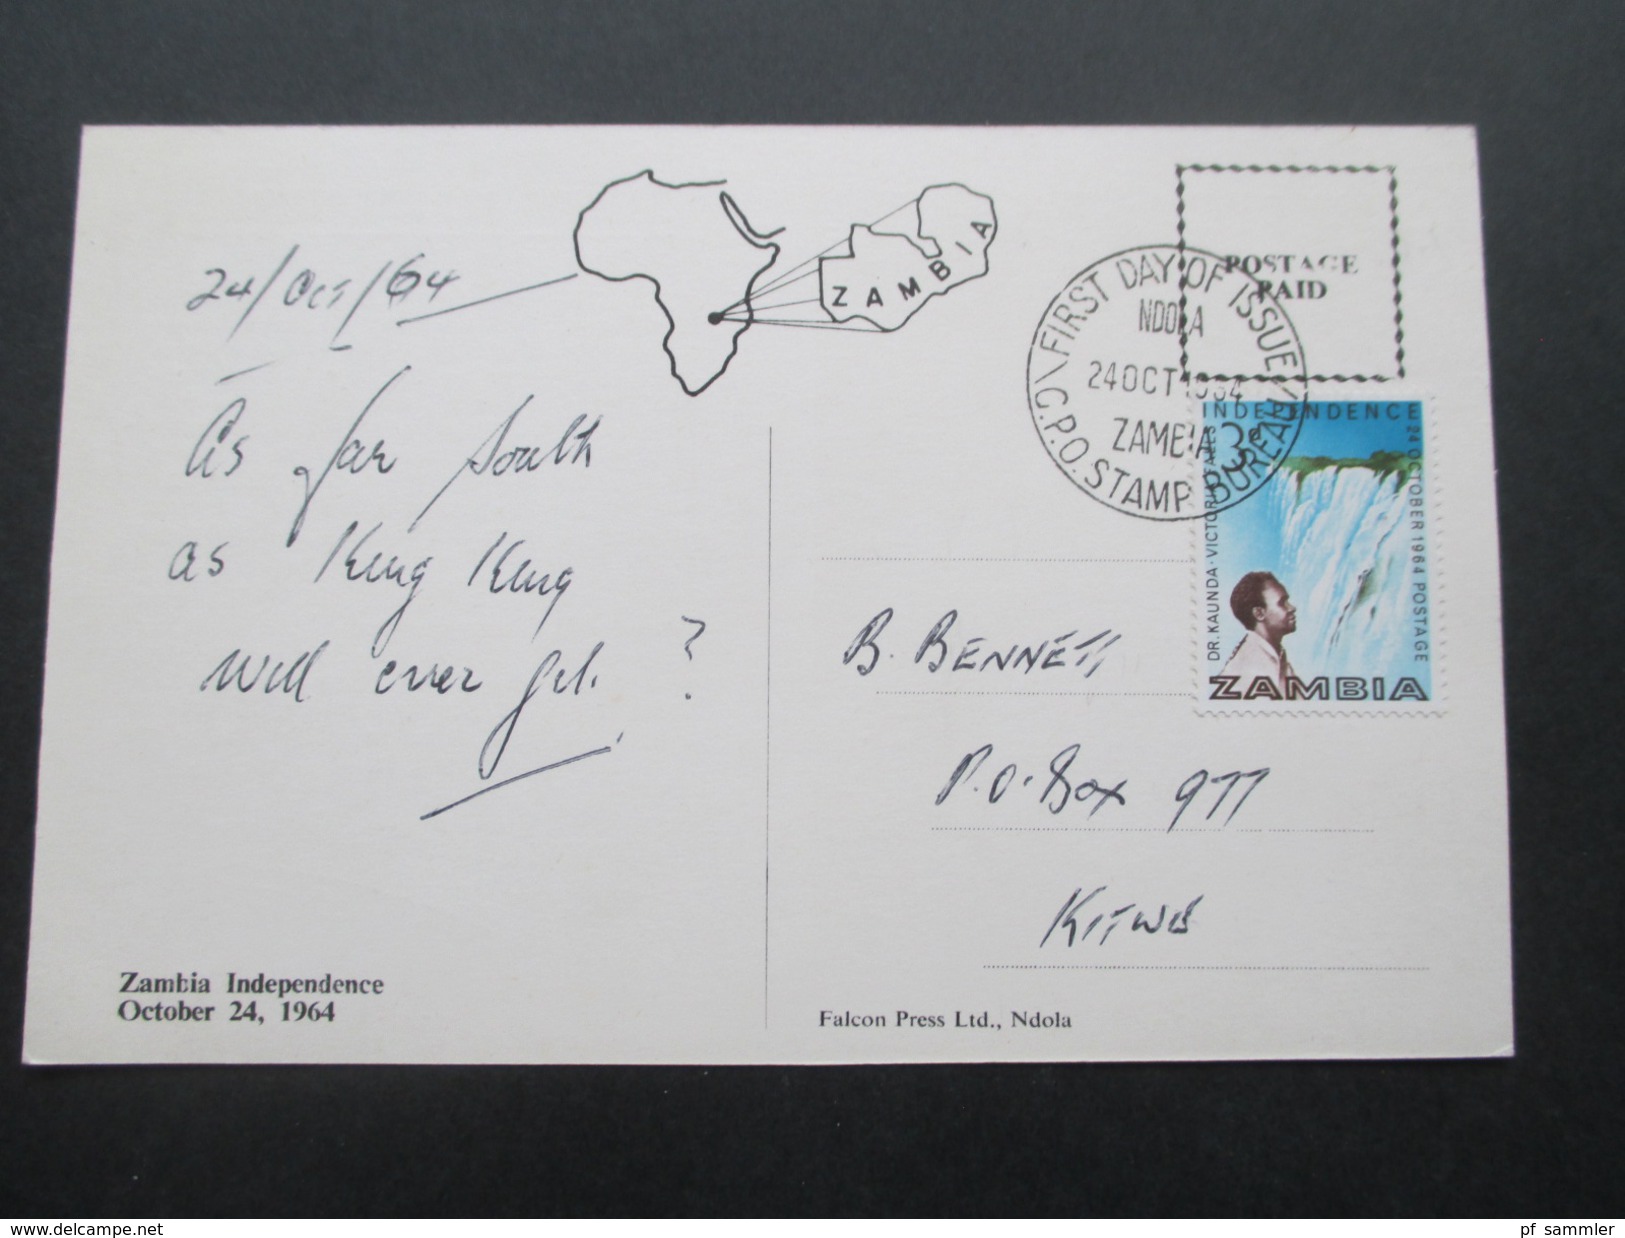 24/Oct/64
As far South
as King King
will ever get.?
Zambia Independence
October 24, 1964
ZAMBIA
POSTAGE
PAID
FIRST DAY OF ISSUE
NDOLA
24 OCT 1964
ZAMBIA
G.P.O. STAMP BUREAU
INDEPENDENCE
3d
24 OCTOBER 1964 POSTAGE
DR. KAUNDA · VICTORIA FALLS
ZAMBIA
B. BENNETT
P.O. Box 977
KITWE
Falcon Press Ltd., Ndola
www.delcampe.net
pf_sammler